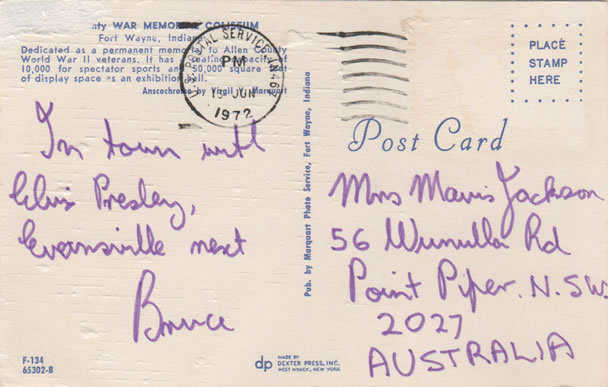 ty WAR MEMORIAL COLISEUM
Fort Wayne, Indiana
Dedicated as a permanent memorial to Allen County
World War II veterans. It has a seating capacity of
10,000 for spectator sports and 50,000 square feet
of display space as an exhibition hall.
Anscochrome by Virgil W. Marquart
U.S. POSTAL SERVICE IN 467
PM
15 JUN
1972
PLACE
STAMP
HERE
Post Card
In town with
Elvis Presley,
Evansville next
Bruce
Pub. by Marquart Photo Service, Fort Wayne, Indiana
Mrs Mavis Jackson
56 Wunulla Rd
Point Piper. N.SW
2027
AUSTRALIA
F-134
65302-B
dp
MADE BY
DEXTER PRESS, INC.
WEST NYACK, NEW YORK